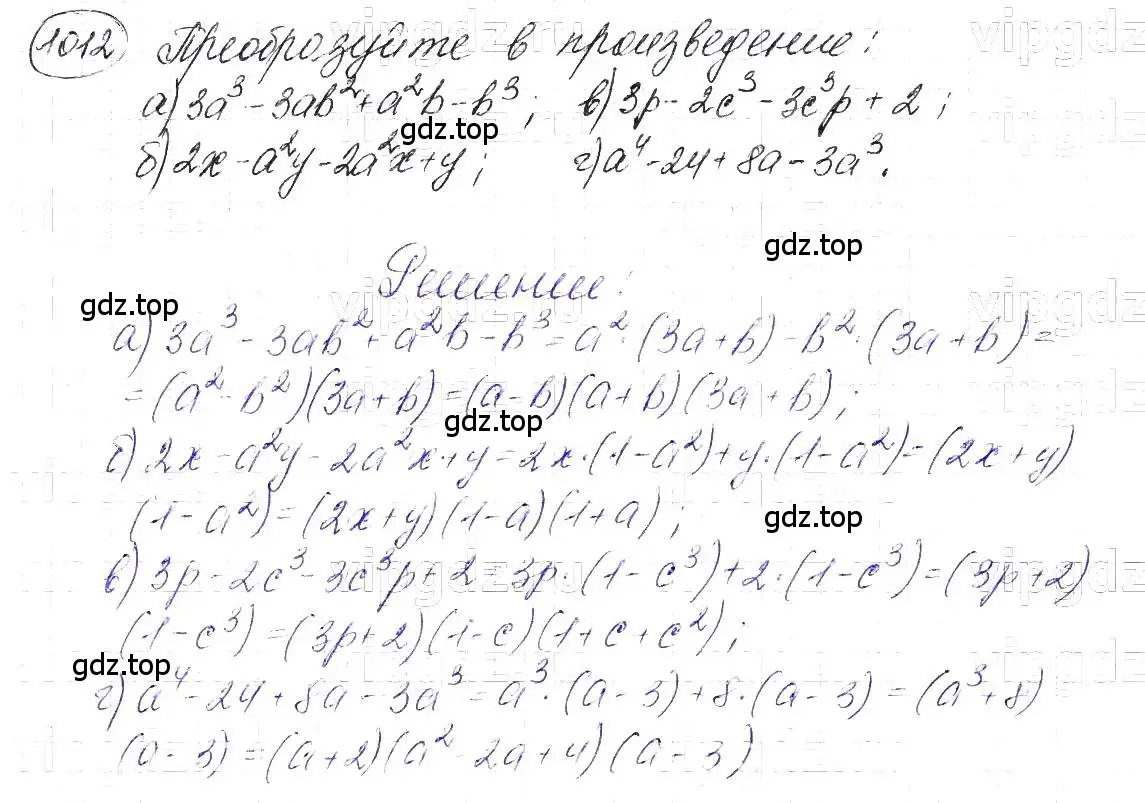 1012 Преобразуйте в произведение:
а) 3a³ - 3ab² + a²b - b³; в) 3p - 2c³ - 3c³p + 2;
gdz.top
б) 2x - a²y - 2a²x + y; г) a⁴ - 24 + 8a - 3a³.
gdz.top
Решение:
gdz.top
vipgdz
vipgdz
а) 3a³ - 3ab² + a²b - b³ = a²·(3a + b) - b²·(3a + b) =
= (a² - b²)(3a + b) = (a - b)(a + b)(3a + b);
gdz.top
б) 2x - a²y - 2a²x + y = 2x·(1 - a²) + y·(1 - a²) = (2x + y)
(1 - a²) = (2x + y)(1 - a)(1 + a);
gdz.top
в) 3p - 2c³ - 3c³p + 2 = 3p·(1 - c³) + 2·(1 - c³) = (3p + 2)
(1 - c³) = (3p + 2)(1 - c)(1 + c + c²);
gdz.top
г) a⁴ - 24 + 8a - 3a³ = a³·(a - 3) + 8·(a - 3) = (a³ + 8)
(a - 3) = (a + 2)(a² - 2a + 4)(a - 3)